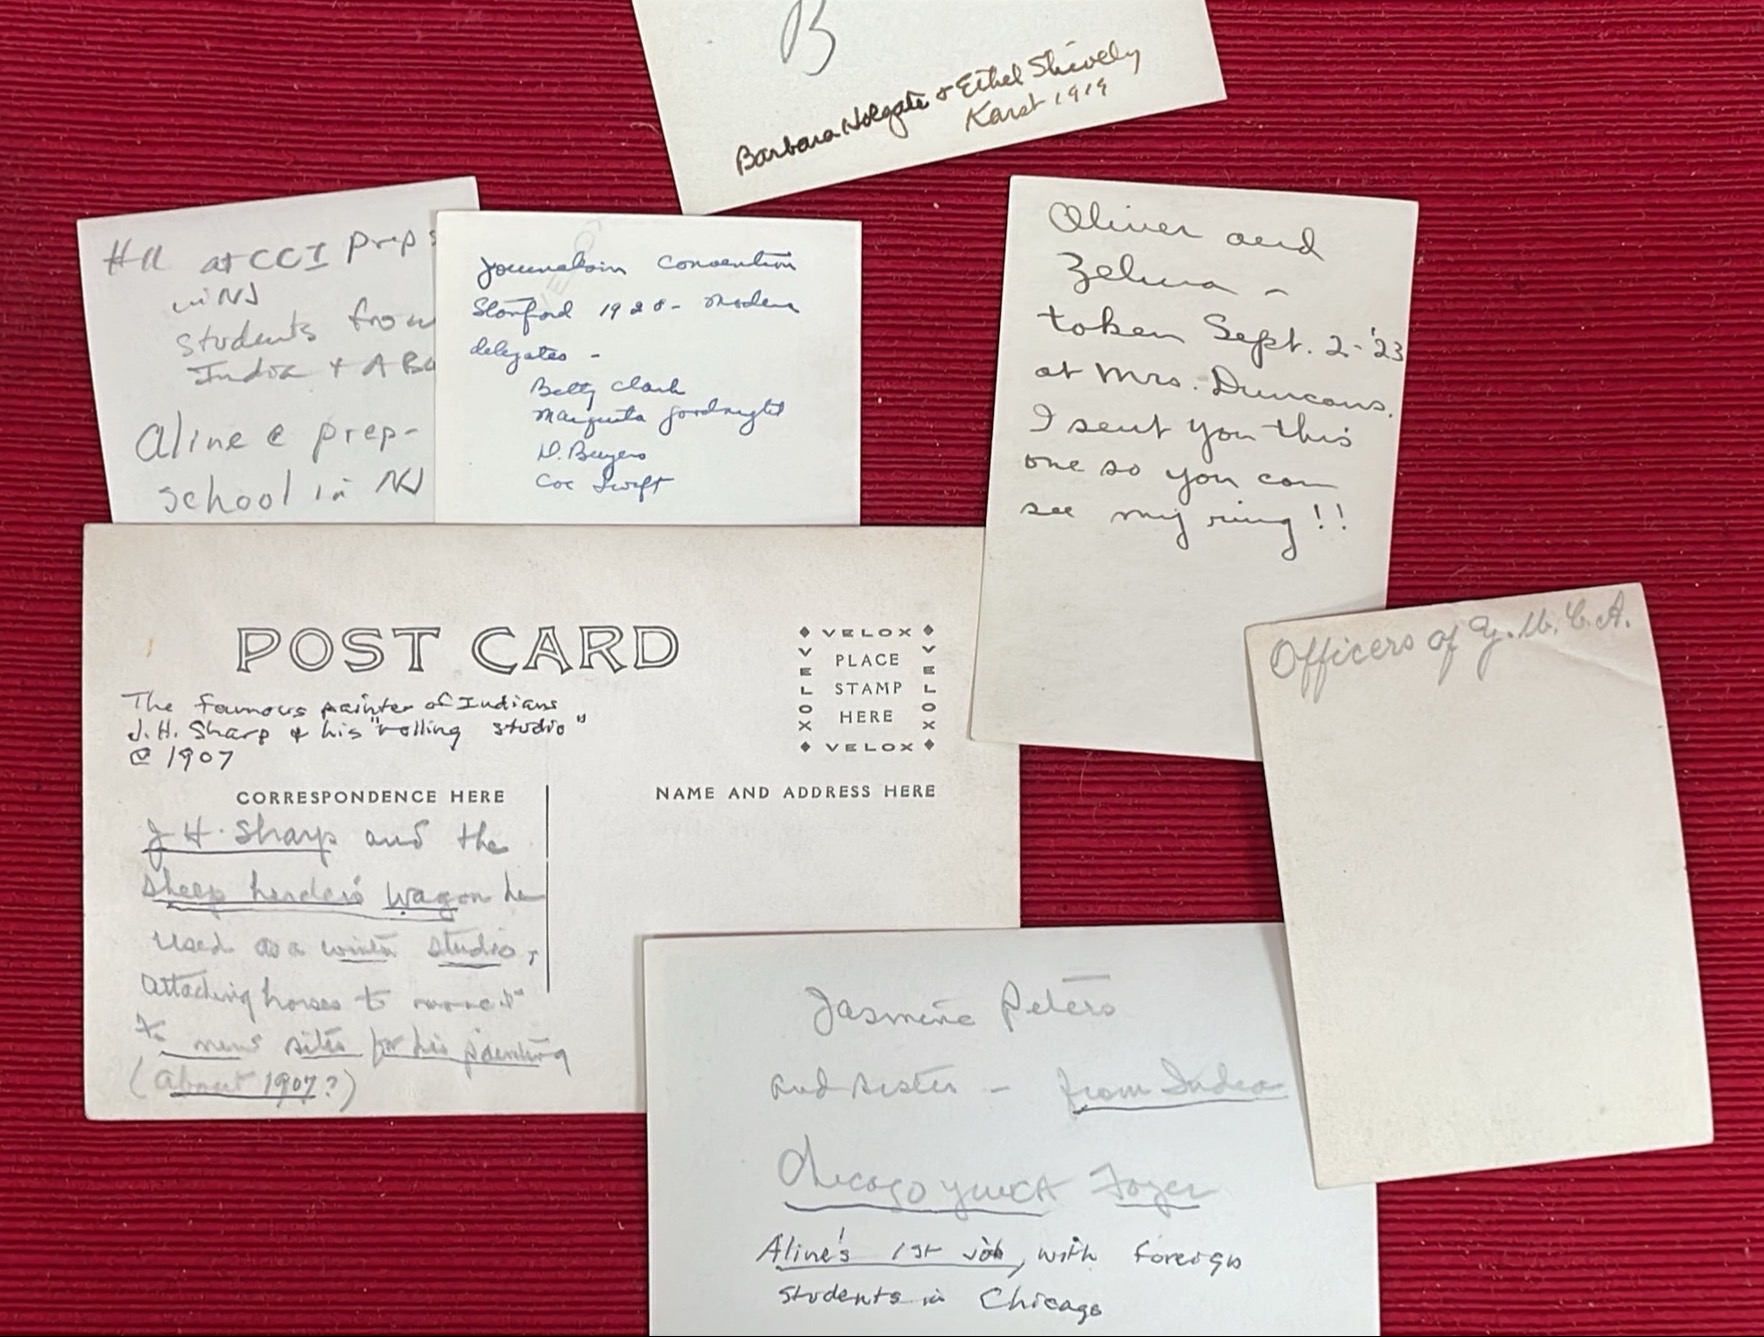 B
Barbara Holgate & Ethel Shively
Karst 1919
at CCI prep s
in NJ
students from
India + A Ba
Aline @ prep-
school in NJ
Journalism Convention
Stanford 1928 - Modern
delegates -
Betty Clark
Marguerita Goodnight
D. Buyers
Coe Swift
Oliver and
Zelma -
taken Sept. 2-'23
at Mrs. Duncans.
I sent you this
one so you can
see my ring!!
POST CARD
VELOX
PLACE
STAMP
HERE
VELOX
VELOX
VELOX
The famous painter of Indians
J. H. Sharp & his "rolling studio"
@ 1907
CORRESPONDENCE HERE
NAME AND ADDRESS HERE
J H. Sharp and the
sheep herders' wagon he
used as a winter studio,
attaching horses to move it
to new sites for his painting
(About 1907?)
Officers of Y.W.C.A.
Jasmine Peters
and sister - from India
Chicago YWCA Foyer
Aline's 1st job, with foreign
students in Chicago